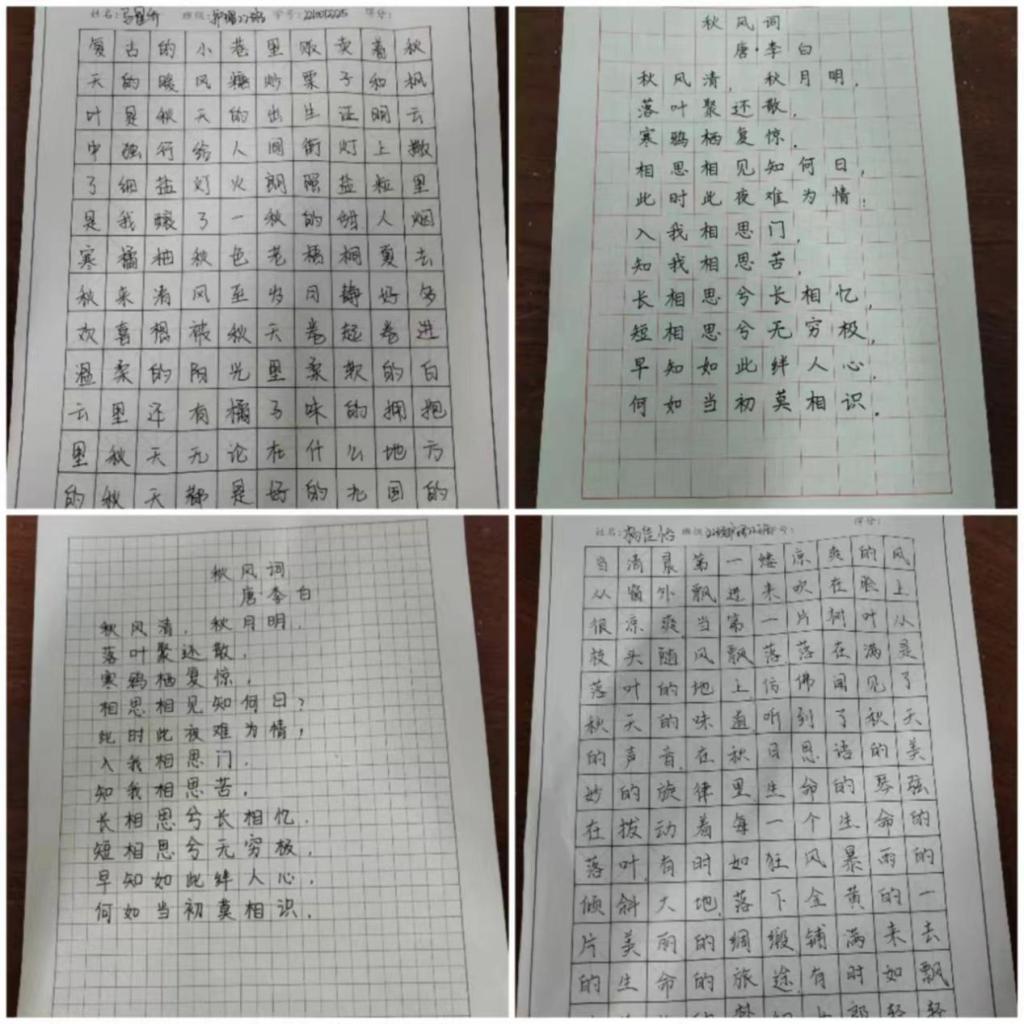 姓名: 班级: 学号: 221012225 评分:
复古的小巷里贩卖着秋
天的暖风糖炒栗子和枫
叶是秋天的出生证明云
中强行给人间街灯上撒
了细盐灯火朗照盐粒里
是我酿了一秋的醋人烟
寒橘柚秋色老梧桐夏去
秋来清风至岁月静好多
欢喜想被秋天卷起卷进
温柔的阳光里柔软的白
云里还有橘子味的拥抱
里秋天无论在什么地方
的秋天都是好的尤因的
秋风词
唐·李白
秋风清,秋月明,
落叶聚还散,
寒鸦栖复惊,
相思相见知何日,
此时此夜难为情;
入我相思门,
知我相思苦,
长相思兮长相忆,
短相思兮无穷极,
早知如此绊人心,
何如当初莫相识.
秋风词
唐·李白
秋风清,秋月明.
落叶聚还散,
寒鸦栖复惊,
相思相见知何日?
此时此夜难为情,
入我相思门.
知我相思苦.
长相思兮长相忆.
短相思兮无穷极.
早知如此绊人心.
何如当初莫相识.
姓名:杨佳怡 班级: 评分:
当清晨第一缕凉爽的风
从窗外飘进来吹在脸上
很凉爽当第一片树叶从
枝头随风飘落落在满是
落叶的地上仿佛闻见了
秋天的味道听到了秋天
的声音.在秋日恩语的美
妙的旋律里.生命的琴弦
在拨动着每一个生命的
落叶.有时如狂风暴雨的
倾斜大地.落下金黄的一
片美丽的绸缎铺满来去
的生命的旅途.有时如飘